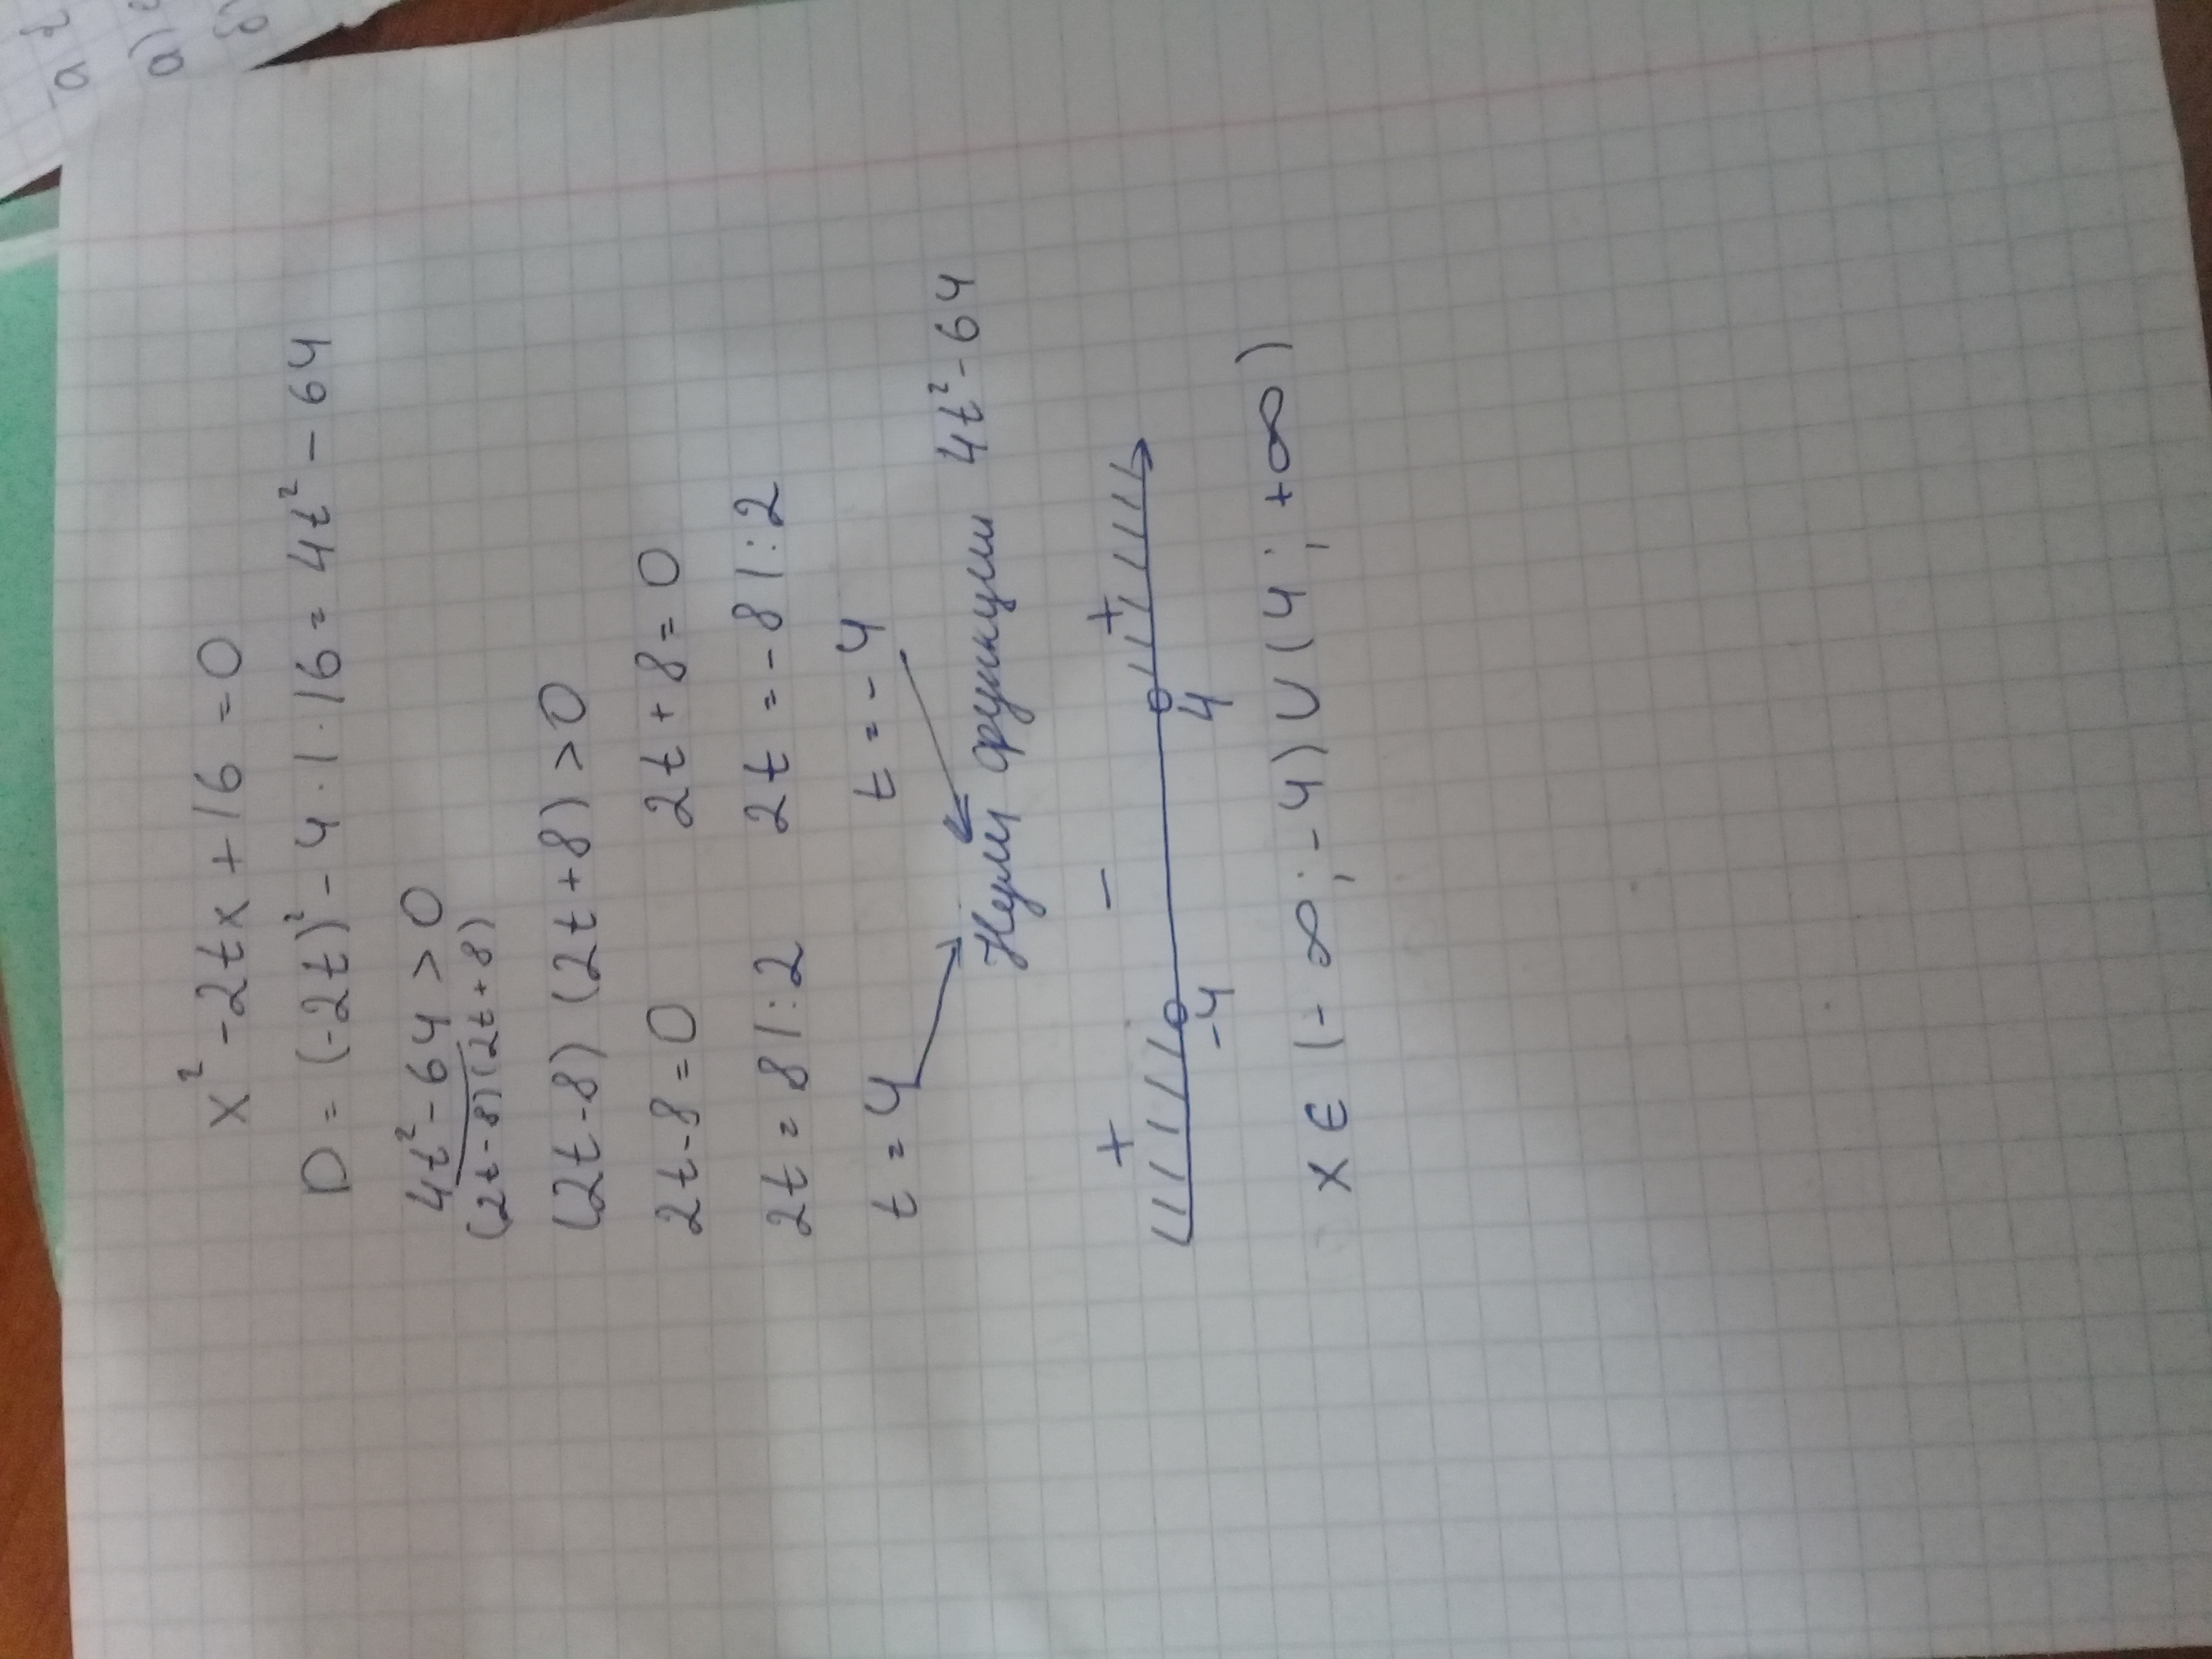 x² - 2tx + 16 = 0
D = (-2t)² - 4 · 1 · 16 = 4t² - 64
4t² - 64 > 0
(2t - 8)(2t + 8)
(2t - 8) (2t + 8) > 0
2t - 8 = 0 2t + 8 = 0
2t = 8 |:2 2t = -8 |:2
t = 4 t = -4
Нули функции 4t² - 64
+ - +
-4 4
x ∈ (-∞; -4) ∪ (4; +∞)